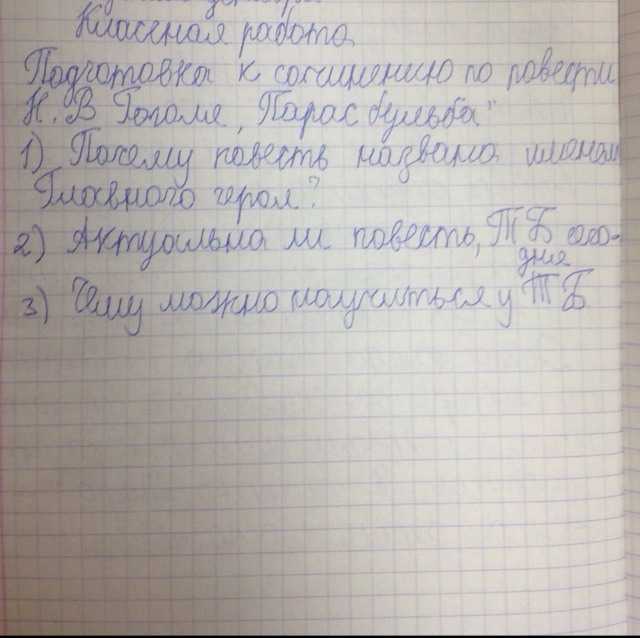 Классная работа
Подготовка к сочинению по повести
Н. В Гоголя „Тарас бульба"
1) Почему повесть названа именем
Главного героя?
2) Актуальна ли повесть „ТБ сего-
дня
3) Чему можно научиться у ТБ